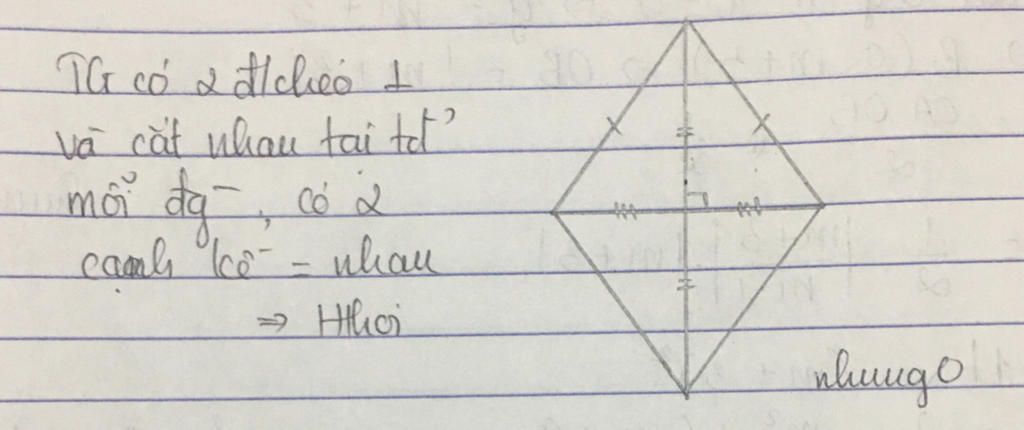 TG có 2 đ/chéo ⊥
và cắt nhau tại tđ'
mỗi đg-, có 2
cạnh kề = nhau
⇒ Hthoi
nhungO